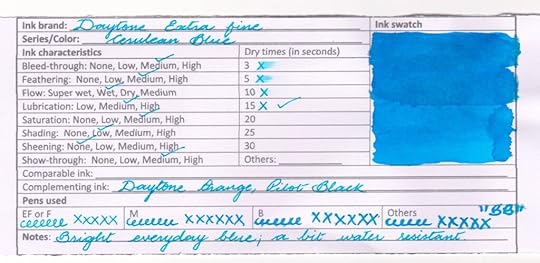 Ink brand: Daytone Extra fine Ink swatch
Series/Color: Cerulean Blue
Ink characteristics Dry times (in seconds)
Bleed-through: None, Low, Medium, High 3 X
Feathering: None, Low, Medium, High 5 X
Flow: Super wet, Wet, Dry, Medium 10 X
Lubrication: Low, Medium, High 15 X ✓
Saturation: None, Low, Medium, High 20
Shading: None, Low, Medium, High 25
Sheening: None, Low, Medium, High 30
Show-through: None, Low, Medium, High Others:
Comparable ink:
Complementing ink: Daytone Orange, Pilot Black
Pens used
EF or F M B Others "BB"
eeeeeee XXXXX eeeeeee XXXXXX eeeeee XXXXXX eeeeee XXXXX
Notes: Bright everyday blue; a bit water resistant.